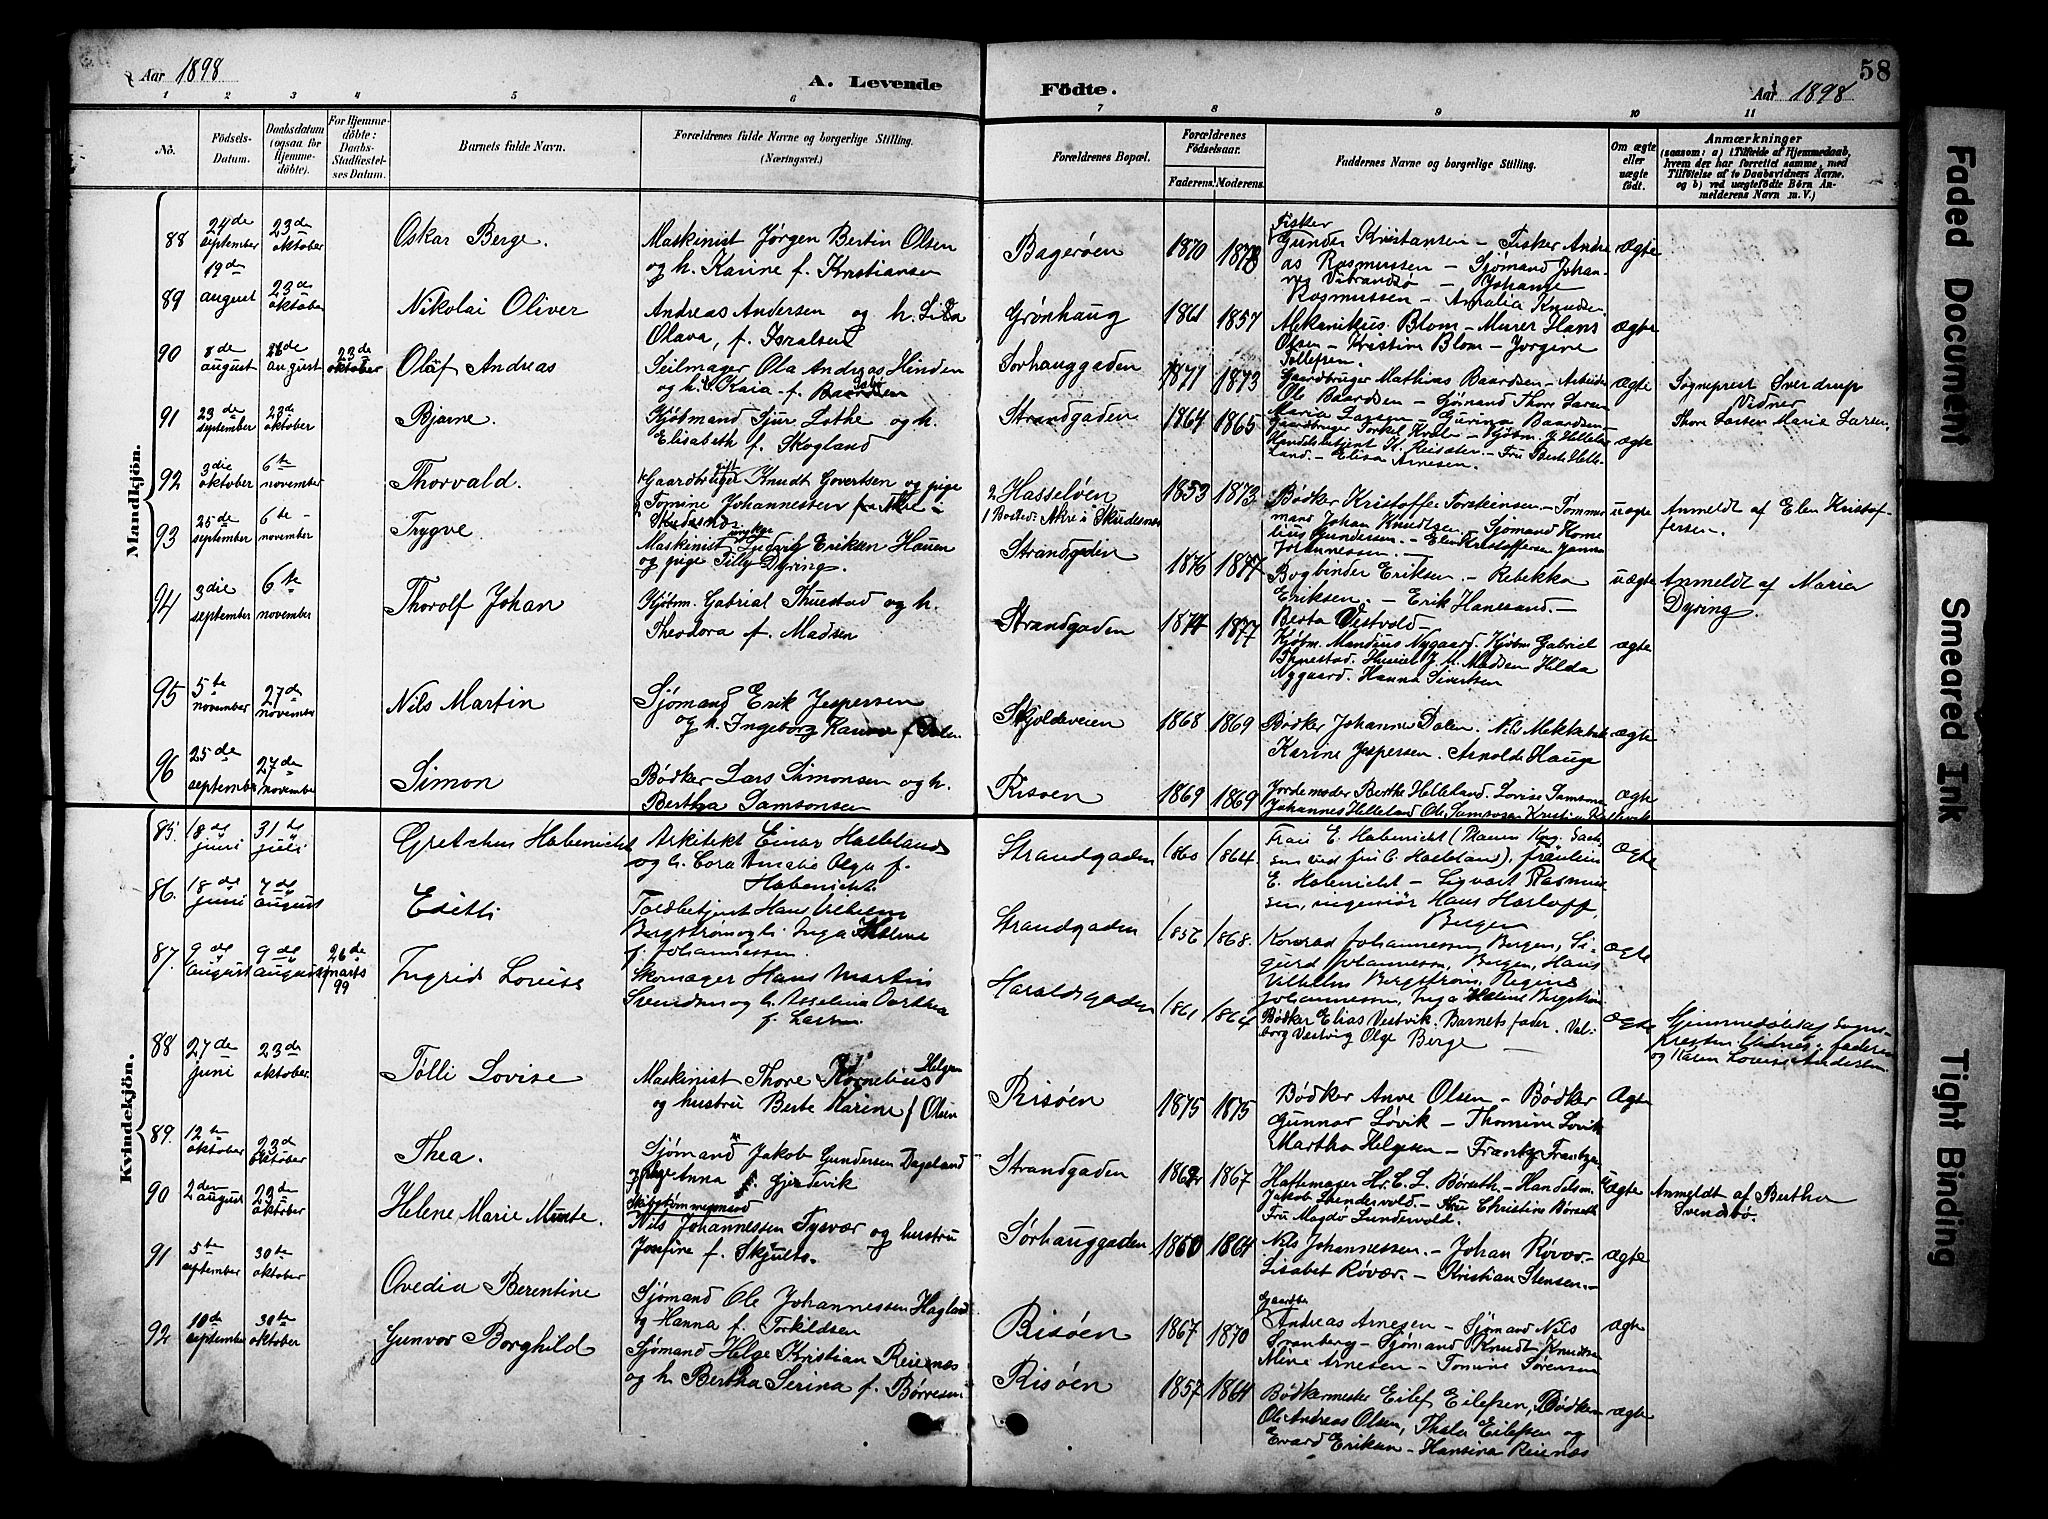 Aar 1898
A. Levende
Födte.
Aar 1898
58
1 2 3 4 5 6 7 8 9 10 11
No.
Födsels-Datum.
Daabsdatum (ogsaa for Hjemme-døbte).
For Hjemme-døbte: Daabs-Stadfæstel-ses Datum.
Barnets fulde Navn.
Forældrenes fulde Navne og borgerlige Stilling. (Næringsvei.)
Forældrenes Bopæl.
Forældrenes Födselsaar.
Faderens. Moderens.
Faddernes Navne og borgerlige Stilling.
Om ægte eller uægte født.
Anmærkninger
(saasom: a) i Tilfælde af Hjemmedaab, hvem der har forrettet samme, med Tilføielse af to Daabsvidners Navne, og b) ved uægtefödte Börn An-melderens Navn m.V.)
Mandkjön.
88 24de september 23de oktober Oskar Berge. Maskinist Jørgen Bertin Olsen
og h. Karine f. Kristiansen
Bagerøen 1870 1878
Fisker
Gunder Kristansen - Fisker Andre
as Rasmussen - Sjømand Johan-
Johanne
Rasmussen - Amalia Knudsen
ægte
89 19de august 23de oktober Nikolai Oliver Andreas Andersen og h.
Olava, f. Israelsen
Grønhaug 1861 1857
Mekanikus Blom - Murer Hans
Olsen - Kristine Blom - Jorgine
Tollefsen
ægte
90 8de august 28de august 23de oktober Olaf Andreas Seilmager Ola Andreas Hinden
og h. Kaia f.
Sørhauggaden 1871 1873
Gaardbruger Mathias Baardsen - Arbeider
Ole Baardsen - Sjømand Thore Larsen
Maria Larsen - Gurina Baardsen
ægte
Sogneprest Sverdrup
Vidner
Thore Larsen Maria Larsen.
91 23de september 23de oktober Bjarne. Kjøbmand Sjur Lothe og h.
Elisabeth f. Skogland
Strandgaden 1864 1865
Gaardbruger Torkel
Fru Berte Helle-
land. - Elisa Arnesen.
ægte
92 3die oktober 6te november Thorvald. Gaardbruger gift Knudt Govertsen og pige
Tomine Johannessen
Skudesnæs
2 Hasseløen
1 Bosted: Akre i Skudesnes
1853 1873
Bødker Kristoffer Torsteinsen - Tømmer
mand Johan Knudsen - Sjømand Korne
lius Gundersen. -
Johannessen. -
uægte
Anmeldt af Elen Kristof-
fersen.
93 25de september 6te november Trygve. Maskinist ungkar Ludvig Eriksen Hauen
og pige Tilly Dyring.
Strandgaden 1876 1877
Bogbinder Eriksen. - Rebekka
Eriksen. - Erik Hanesand. -
Berta Vestvold -
uægte
Anmeldt af Maria
Dyring.
94 3die september 6te november Thorolf Johan Kjøbm. Gabriel Thuestad og h.
Theodora f. Madsen
Strandgaden 1874 1877
Kjøbm. Mandius Nygaard. Kjøbm Gabriel
Thuestad. J. M. Madsen Hilda
Nygaard. Hanna Sivertsen
ægte
95 5te november 27de november Nils Martin Sjømand Erik Jespersen
og h. Ingeborg Karine f Dalen
Skjoldeveien 1868 1869
Bødker Johannes Dalen. Nils
Karine Jespersen. Arnolde Hauge
ægte
96 25de september 27de november Simon Bødker Lars Simonsen og h.
Bertha Samsonsen
Risøen 1869 1869
Jordemoder Berthe Helleland. Lovise Samsons
Johannes Helleland Ole Samsonsen Kristian
ægte
Kvindekjön.
85. 18de juni 31te juli Gretchen Habenicht Arkitekt Einar Halleland
og h. Cora Amalie Olga f.
Habenicht.
Strandgaden 1860 1864
E. Habenicht (Plauen Kong. Sach-
sen ved fru C. Halleland), fräulein
E. Habenicht - Sigvart Rasmus
sen, ingeniør Hans Harloff,
Bergen
Ægte
86. 18de juni 7de august Edith Toldbetjent Hans Vilhelm
Bergstrøm og h. Inga Helene
f. Johannessen.
Strandgaden 1856 1868.
Konrad Johannessen Bergen, Si-
gurd Johannessen, Bergen, Hans
Vilhelm Bergstrøm, Regine
Johannessen, Inga Helene Bergstrøm
ægte
87. 9de august 9de august 26de marts 99 Ingrid Lovise Skomager Hans Martin
Svendsen og h. Asselina Dorthea
f. Larsen.
Haraldsgaden 1861 1864
Bødker Elias Vestvik. Barnets fader. Val-
borg Vestvig Olga Berge -
ægte
Hjemmedøbt af Sogne-
presten. Vidner: faderen
og Karen Lovise Andersen
88 27de juni 23de oktober. Tølli Lovise Maskinist Thore Kornelius Helgesen
og hustru Berte Karine f Olsen
Risøen 1875 1875
Bødker Anve Olsen - Bødker
Gunnar Løvik - Thomine Løvik
Martha Helgesen - Frantz Frantzen
Ægte
89. 12te oktober 23de oktober Thea. Sjømand Jakob Gundersen Dageland
og pige Anna Gjerdevik
Strandgaden 1862 1867
Haftemager Hr. E. L. Børseth - Handelsm.
Jakob Lundervold. - Fru Christine Børseth
Fru Magda Lundervold.
Uægte
Anmeldt af Berthe
Svendsbø.
90 2den august 23de oktober Helene Marie Munte. Skibstømmermand
Nils Johannessen Tysvær og hustru
Josefine f. Skjults.
Sørhauggaden 1850 1864
Nils Johannessen. - Johan Røvær. -
Lisabet Røvær. - Kristian Stensen. -
ægte
91 5te september 30te oktober Ovedia Berentine Sjømand Ole Johannessen Hagland
og Hanna f. Torkildsen
Risøen 1867 1870
Gaardbr
Andreas Arnesen - Sjømand Nils
Granberg - Sjømand Knudt Knudtsen
Mine Arnesen - Tomine Sørensen
ægte
92 10de september 30te oktober Gunvor Borghild Sjømand Helge Kristian Reienæs
og h. Bertha Serina f. Børresen
Risøen 1857 1864
Bødkermester Eilef Eilefsen, Bødker
Ole Andreas Olsen, Thala Eilefsen og
Evard Eriksen - Hansina Reienæs
ægte
Faded Document
Smeared Ink
Tight Binding